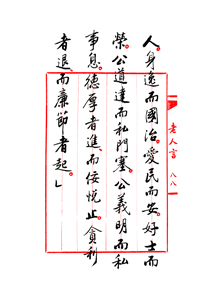 老人言 八八
人身逸而國治。愛民而安。好士而
榮。公道達而私門塞。公義明而私
事息。德厚者進。而佞悅止。貪利
者退。而廉節者起。」